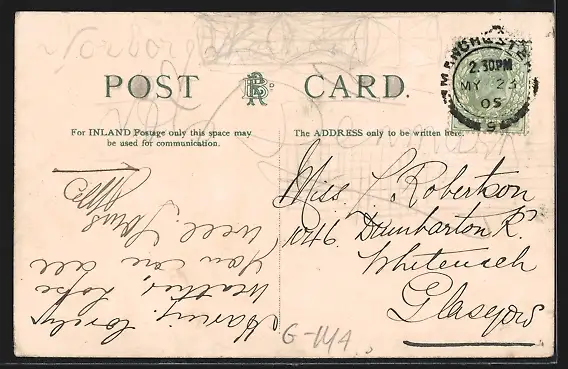 POST CARD.
For INLAND Postage only this space may
be used for communication.
The ADDRESS only to be written here.
MANCHESTER
2.30PM
MY 23
05
Having lovely
weather, hope
you are all
well. Yours
Miss J. Robertson
1046 Dumbarton R.
Whiteinch
Glasgow
G-1/4